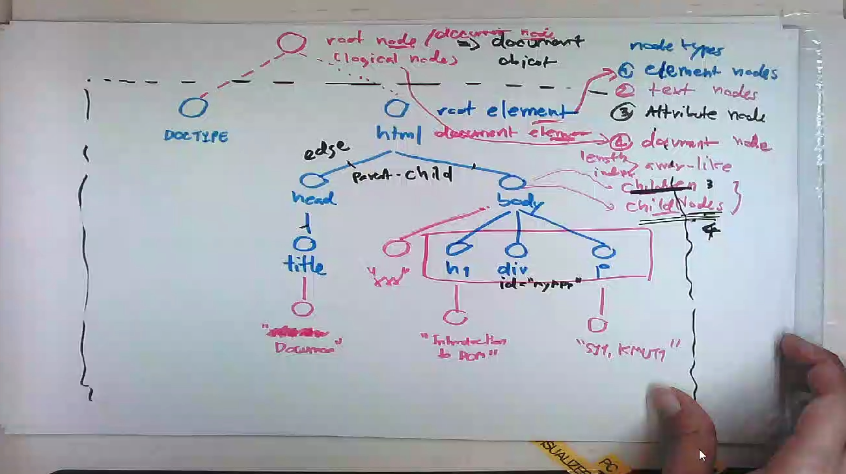 root node / document node
(logical node)
⇒ document
object
node types
① element nodes
② text nodes
③ Attribute node
④ document node
DOCTYPE
root element
html document element
edge
parent-child
head
body
length
index
array-like
children 3
childNodes
4
title
"xxx"
h1
div
id="myppp"
p
Document"
"Introduction
to DOM"
"SIT, KMUTT"
PC